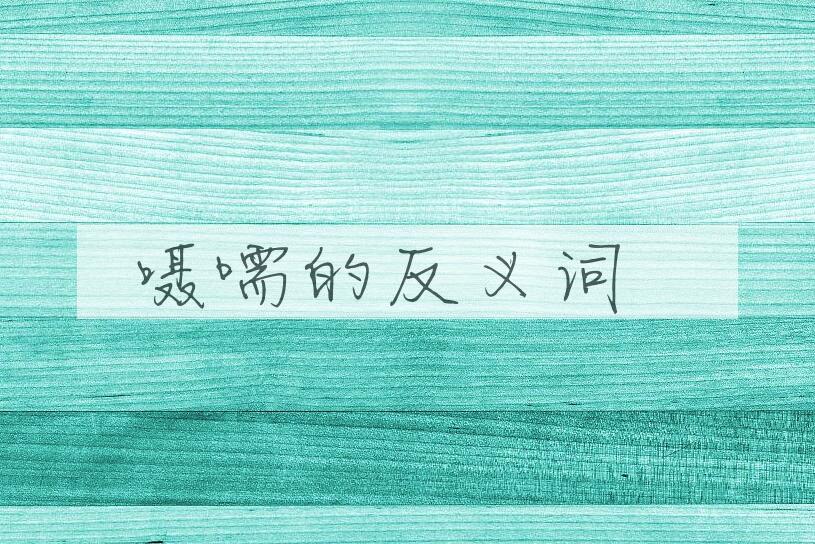 嗫嚅的反义词